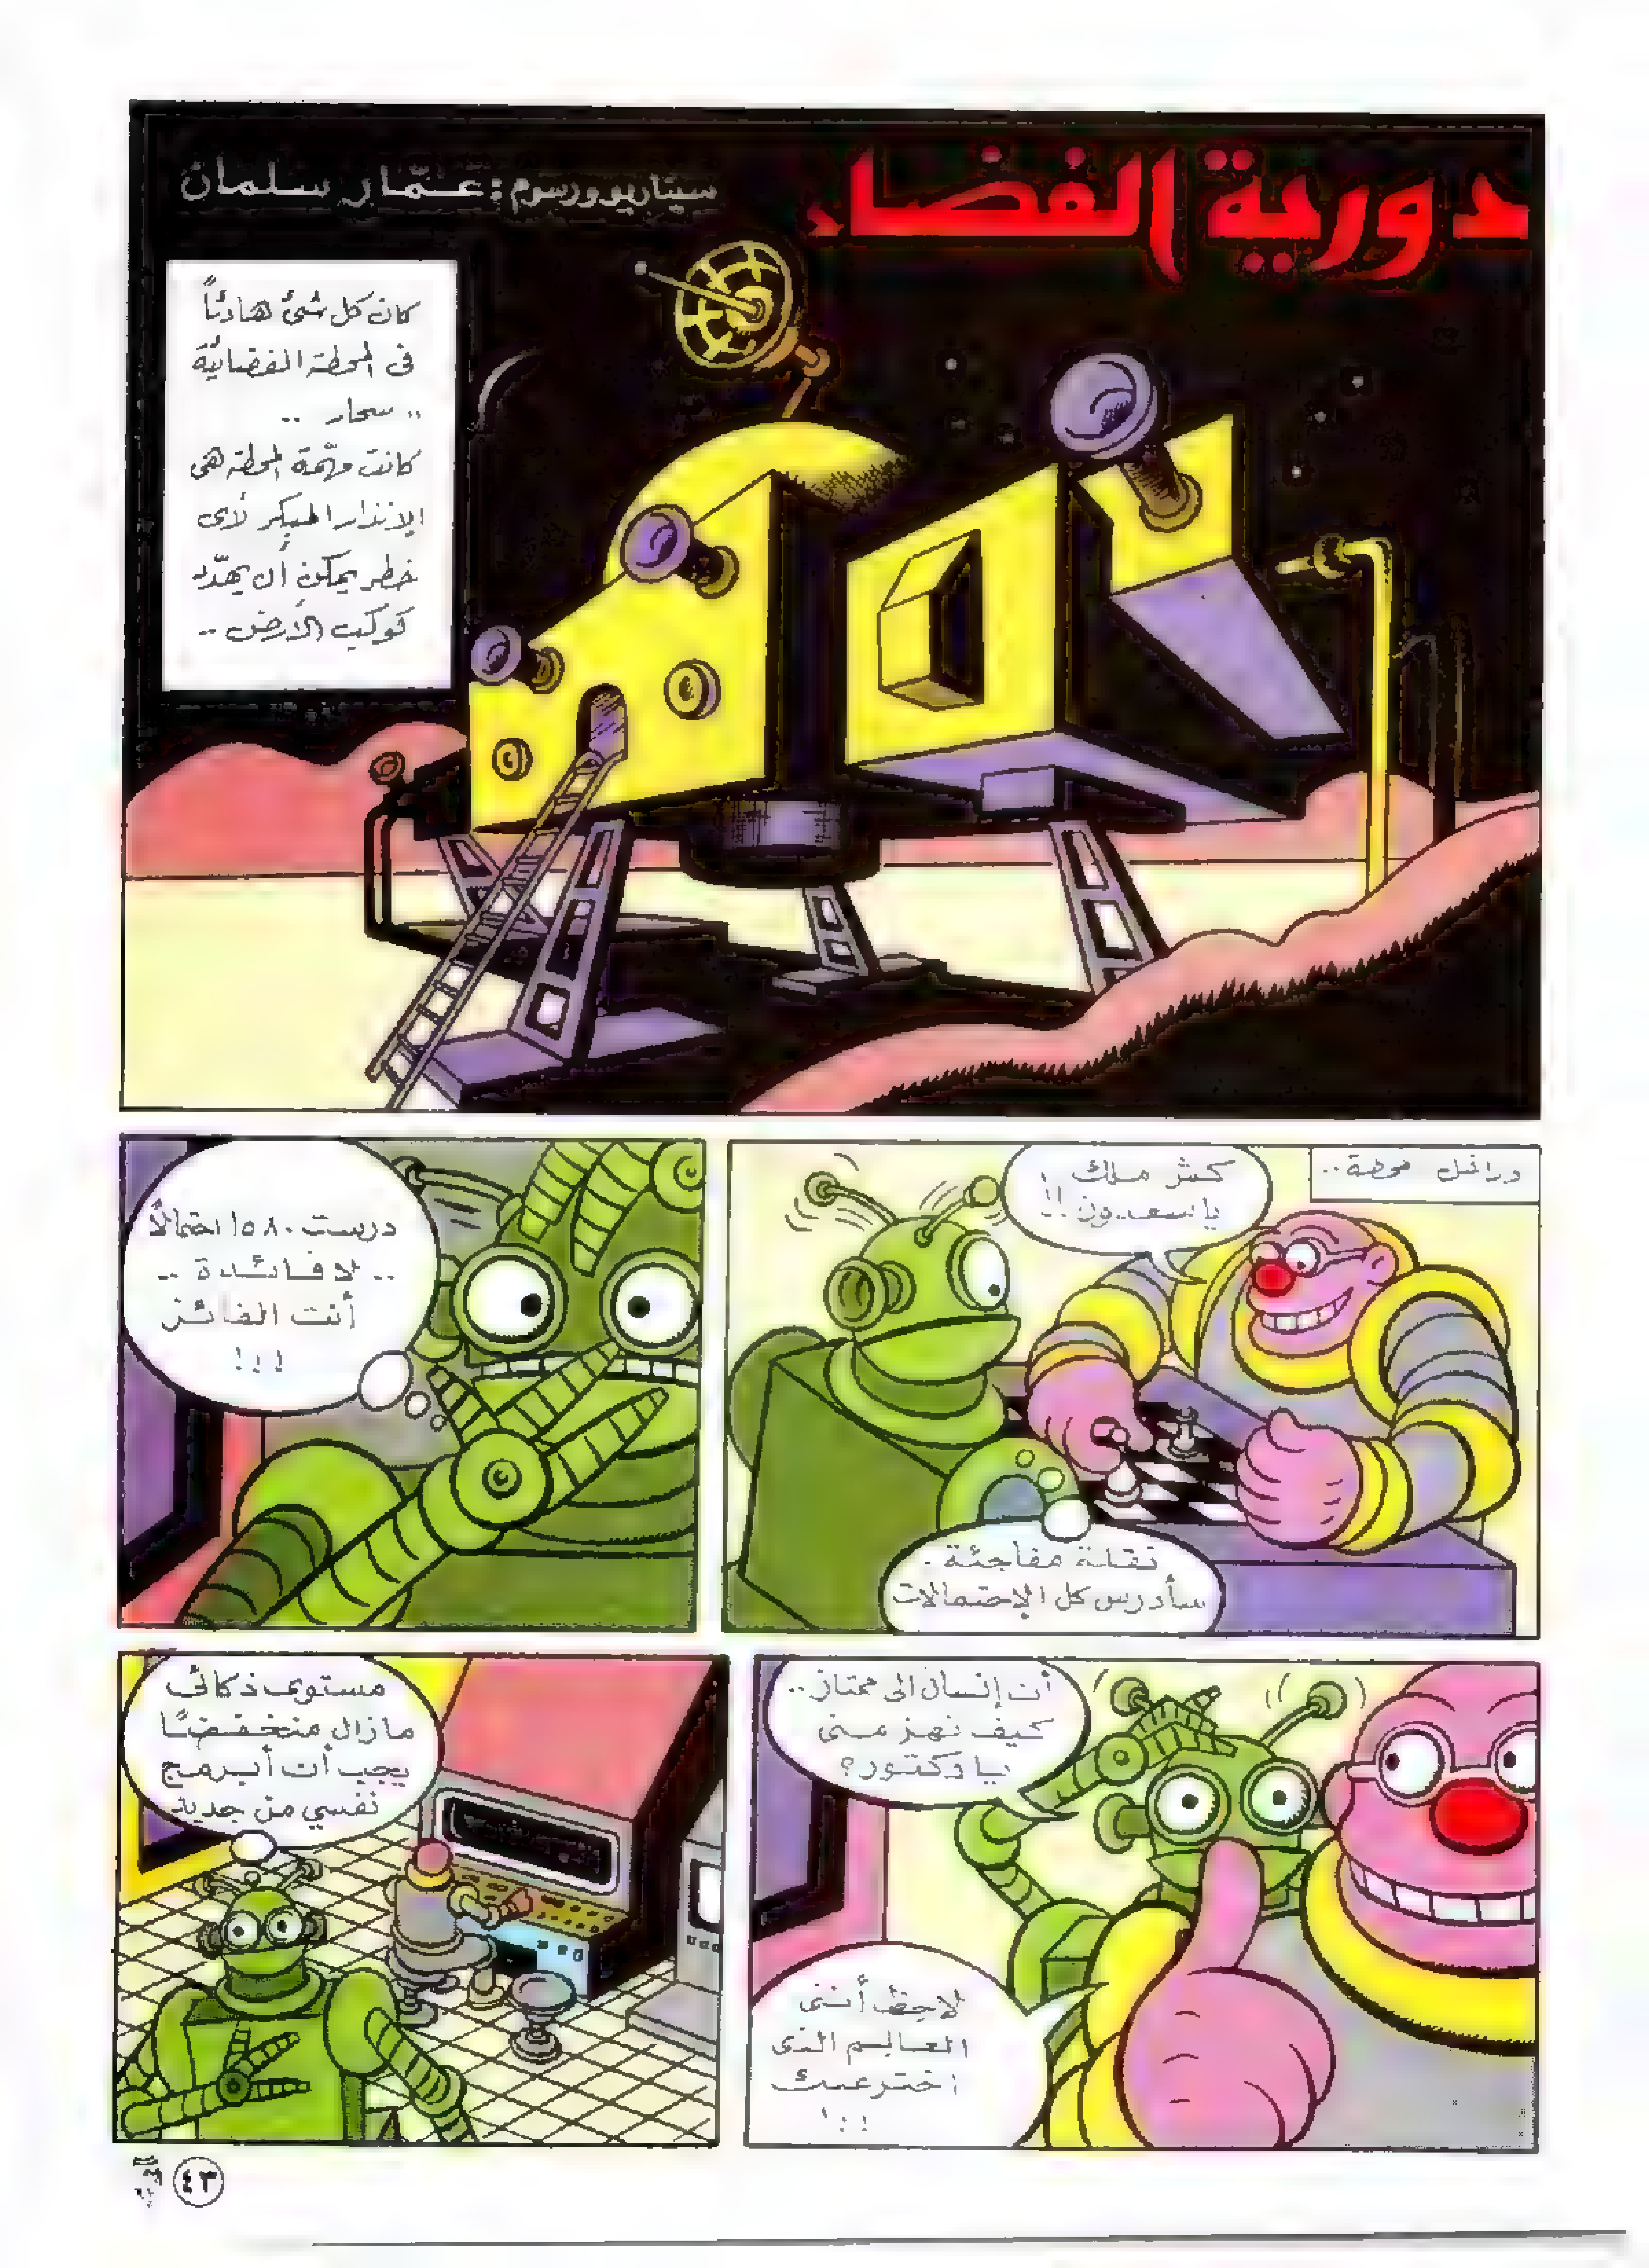 دورية الفضاء
سيناريو ورسوم : عمّار سلمان
كان كل شئ هادئاً
فى المحطة الفضائية
.. سحار ..
كانت مهمّة المحطة هى
الإنذار المبكر لأى
خطر يمكن أن يهدّد
كوكب الأرض ..
وداخل محطة ..
كش ملك
يا سعدون !!
نقلة مفاجئة .
سأدرس كل الإحتمالات
درست ١٥٨٠ احتمالاً
.. لا فائدة ..
أنت الفائز
!!!
أنت إنسان الى ممتاز ..
كيف تهزمنى
يا دكتور ؟
لاحظ أننى
العالم الذى
اخترعك
!!!
مستوى ذكائى
مازال منخفضًا
يجب أن أبرمج
نفسي من جديد
٤٣